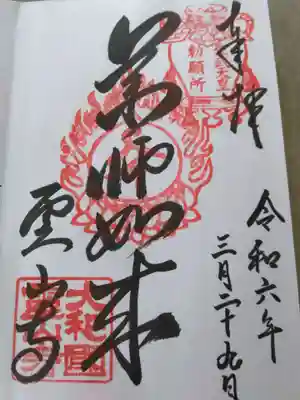 奉拝
令和六年
三月二十九日
勅願所
薬師如来
霊山寺
大和國